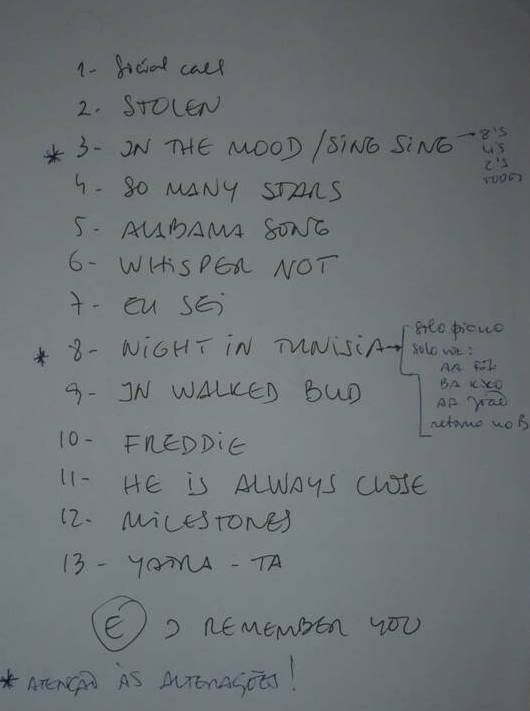 1- Social call
2- STOLEN
* 3- IN THE MOOD / SING SING → 8'S
4'S
2'S
TODOS
4- SO MANY STARS
5- ALABAMA SONG
6- WHISPER NOT
7- EU SEI
* 8- NIGHT IN TUNISIA → solo piano
solo voz:
AA
BA
AA João
retorno no B
9- IN WALKED BUD
10- FREDDIE
11- HE IS ALWAYS CLOSE
12- MILESTONES
13- YATRA-TA
É I REMEMBER YOU
* ATENÇÃO ÀS ALTERAÇÕES!